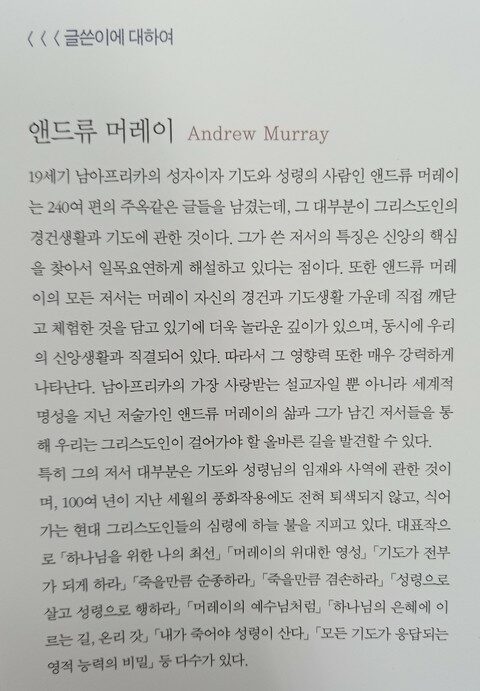 < < < 글쓴이에 대하여
앤드류 머레이 Andrew Murray
19세기 남아프리카의 성자이자 기도와 성령의 사람인 앤드류 머레이
는 240여 편의 주옥같은 글들을 남겼는데, 그 대부분이 그리스도인의
경건생활과 기도에 관한 것이다. 그가 쓴 저서의 특징은 신앙의 핵심
을 찾아서 일목요연하게 해설하고 있다는 점이다. 또한 앤드류 머레
이의 모든 저서는 머레이 자신의 경건과 기도생활 가운데 직접 깨닫
고 체험한 것을 담고 있기에 더욱 놀라운 깊이가 있으며, 동시에 우리
의 신앙생활과 직결되어 있다. 따라서 그 영향력 또한 매우 강력하게
나타난다. 남아프리카의 가장 사랑받는 설교자일 뿐 아니라 세계적
명성을 지닌 저술가인 앤드류 머레이의 삶과 그가 남긴 저서들을 통
해 우리는 그리스도인이 걸어가야 할 올바른 길을 발견할 수 있다.
특히 그의 저서 대부분은 기도와 성령님의 임재와 사역에 관한 것이
며, 100여 년이 지난 세월의 풍화작용에도 전혀 퇴색되지 않고, 식어
가는 현대 그리스도인들의 심령에 하늘 불을 지피고 있다. 대표작으
로 「하나님을 위한 나의 최선」 「머레이의 위대한 영성」 「기도가 전부
가 되게 하라」 「죽을만큼 순종하라」 「죽을만큼 겸손하라」 「성령으로
살고 성령으로 행하라」 「머레이의 예수님처럼」 「하나님의 은혜에 이
르는 길, 온리 갓」 「내가 죽어야 성령이 산다」 「모든 기도가 응답되는
영적 능력의 비밀」 등 다수가 있다.